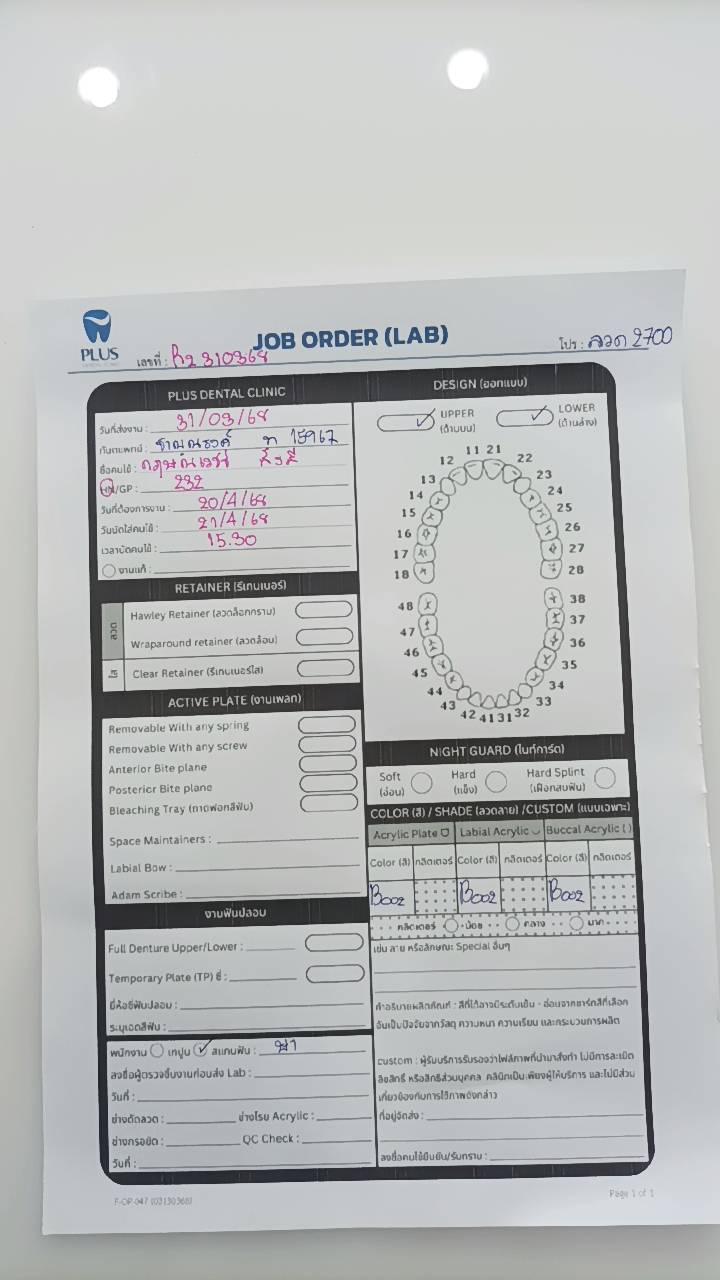 PLUS
DENTAL CLINIC
JOB ORDER (LAB)
เลขที่ : R2 310368
โปร : ลวด 2700
PLUS DENTAL CLINIC
วันที่ส่งงาน : 31/03/68
ทันตแพทย์ : ชาญณรงค์ ท 15967
ชื่อคนไข้ :
HN/GP : 232
วันที่ต้องการงาน : 20/4/68
วันนัดใส่คนไข้ : 21/4/68
เวลานัดคนไข้ : 15.30
งานแก้ :
RETAINER (รีเทนเนอร์)
ลวด
Hawley Retainer (ลวดล็อกกราม)
Wraparound retainer (ลวดอ้อม)
ใส
Clear Retainer (รีเทนเนอร์ใส)
ACTIVE PLATE (งานเพลท)
Removable With any spring
Removable With any screw
Anterior Bite plane
Posterior Bite plane
Bleaching Tray (ถาดฟอกสีฟัน)
Space Maintainers :
Labial Bow :
Adam Scribe :
งานฟันปลอม
Full Denture Upper/Lower :
Temporary Plate (TP) ซี่ :
ยี่ห้อซี่ฟันปลอม :
ระบุเฉดสีฟัน :
พนักงาน เทปูน สแกนฟัน :
ลงชื่อผู้ตรวจชิ้นงานก่อนส่ง Lab :
วันที่ :
ช่างดัดลวด : ช่างโรย Acrylic :
ช่างกรอขัด : QC Check :
วันที่ :
DESIGN (ออกแบบ)
UPPER (ด้านบน)
LOWER (ด้านล่าง)
11 21
12 22
13 23
14 24
15 25
16 26
17 27
18 28
48 38
47 37
46 36
45 35
44 34
43 33
42 41 31 32
NIGHT GUARD (ไนท์การ์ด)
Soft (อ่อน)
Hard (แข็ง)
Hard Splint (เฝือกสบฟัน)
COLOR (สี) / SHADE (ลวดลาย) /CUSTOM (แบบเฉพาะ)
Acrylic Plate Labial Acrylic Buccal Acrylic ( )
Color (สี) กลิตเตอร์ Color (สี) กลิตเตอร์ Color (สี) กลิตเตอร์
B002 B002 B002
กลิตเตอร์ น้อย กลาง มาก
เช่น ลาย หรือลักษณะ Special อื่นๆ
คำอธิบายผลิตภัณฑ์ : สีที่ได้อาจมีระดับเข้ม - อ่อนจากชาร์ทสีที่เลือก
อันเป็นปัจจัยจากวัสดุ ความหนา ความเรียบ และกระบวนการผลิต
custom : ผู้รับบริการรับรองว่าไฟล์ภาพที่นำมาสั่งทำ ไม่มีการละเมิด
ลิขสิทธิ์ หรือสิทธิส่วนบุคคล คลินิกเป็นเพียงผู้ให้บริการ และไม่มีส่วน
เกี่ยวข้องกับการใช้ภาพดังกล่าว
ที่อยู่จัดส่ง :
ลงชื่อคนไข้ยืนยัน/รับทราบ :
F-OP-047 (03130368)
Page 1 of 1